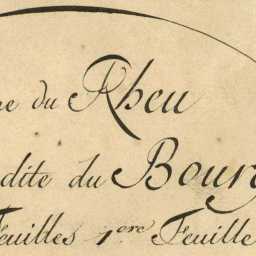 ne du Rheu
dite du Bourg
Feuilles 1ere Feuille